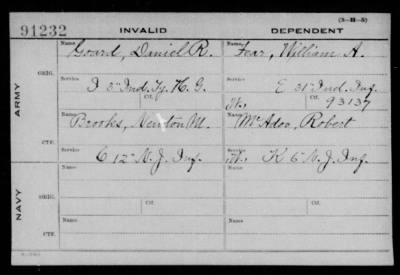 (3-H-5)
91232 INVALID DEPENDENT
ARMY
ORIG.
Name Goard, Daniel R. Name Fear, William A.
Service I 3" Ind. Ty. H. G. Service E 31" Ind. Inf.
Ctf. W. Ctf. 93137
CTF.
Name Brooks, Newton M. Name McAdoo, Robert
Service C 12" N. J. Inf. Service W. K 6" N. J. Inf.
NAVY
ORIG.
Name Name
Service Ctf. Service Ctf.
CTF.
Name Name